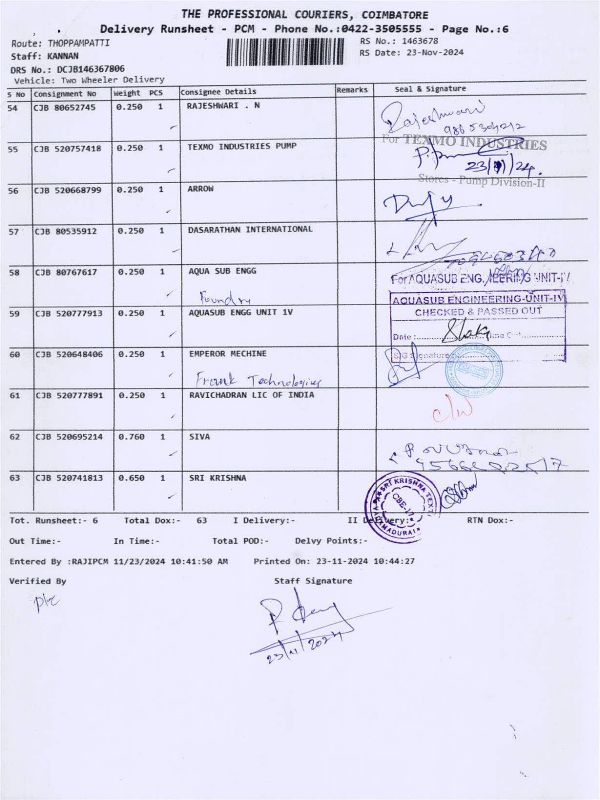 THE PROFESSIONAL COURIERS, COIMBATORE
Delivery Runsheet - PCM - Phone No.:0422-3505555 - Page No.:6
Route: THOPPAMPATTI RS No.: 1463678
Staff: KANNAN RS Date: 23-Nov-2024
DRS No.: DCJB146367806
Vehicle: Two Wheeler Delivery
S No Consignment No Weight PCS Consignee Details Remarks Seal & Signature
54 CJB 80652745 0.250 1 RAJESHWARI . N
Rajeshwari
For TEXMO INDUSTRIES
55 CJB 520757418 0.250 1 TEXMO INDUSTRIES PUMP
23/11/24.
Stores - Pump Division-II
56 CJB 520668799 0.250 1 ARROW
57 CJB 80535912 0.250 1 DASARATHAN INTERNATIONAL
58 CJB 80767617 0.250 1 AQUA SUB ENGG
For AQUASUB ENGINEERING UNIT-IV
Foundry
AQUASUB ENGINEERING-UNIT-IV
59 CJB 520777913 0.250 1 AQUASUB ENGG UNIT 1V
CHECKED & PASSED OUT
Date :
60 CJB 520648406 0.250 1 EMPEROR MECHINE
Frank Technologies
61 CJB 520777891 0.250 1 RAVICHADRAN LIC OF INDIA
c/w
62 CJB 520695214 0.760 1 SIVA
63 CJB 520741813 0.650 1 SRI KRISHNA
SRI KRISHNA TEXT
CBE-17
Tot. Runsheet:- 6 Total Dox:- 63 I Delivery:- II Delivery:- RTN Dox:-
Out Time:- In Time:- Total POD:- Delvy Points:-
Entered By :RAJIPCM 11/23/2024 10:41:50 AM Printed On: 23-11-2024 10:44:27
Verified By Staff Signature
23/11/2024